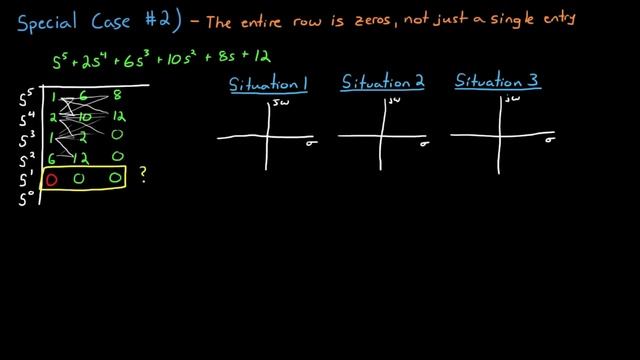 Special Case #2) - The entire row is zeros, not just a single entry
s⁵ + 2s⁴ + 6s³ + 10s² + 8s + 12
s⁵ 1 6 8
s⁴ 2 10 12
s³ 1 2 0
s² 6 12 0
s¹ 0 0 0 ?
s⁰
Situation 1 Situation 2 Situation 3
jω jω jω
σ σ σ